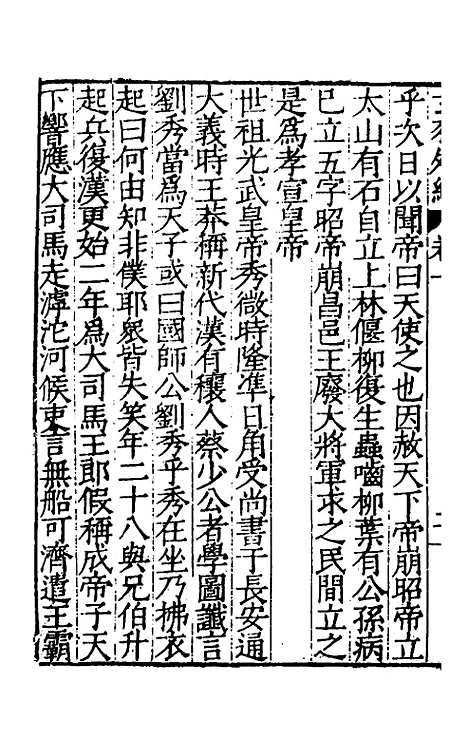 乎次日以聞帝曰天使之也因赦天下帝崩昭帝立
太山有石自立上林偃柳復生蟲嚙柳葉有公孫病
已立五字昭帝崩昌邑王廢大將軍求之民間立之
是爲孝宣皇帝
世祖光武皇帝秀微時隆準日角受尚書于長安通
大義時王莽稱新代漢有穰人蔡少公者學圖讖言
劉秀當爲天子或曰國師公劉秀乎秀在坐乃拂衣
起曰何由知非僕耶衆皆失笑年二十八與兄伯升
起兵復漢更始二年爲大司馬王郎假稱成帝子天
下響應大司馬走滹沱河候吏言無船可濟遣王霸